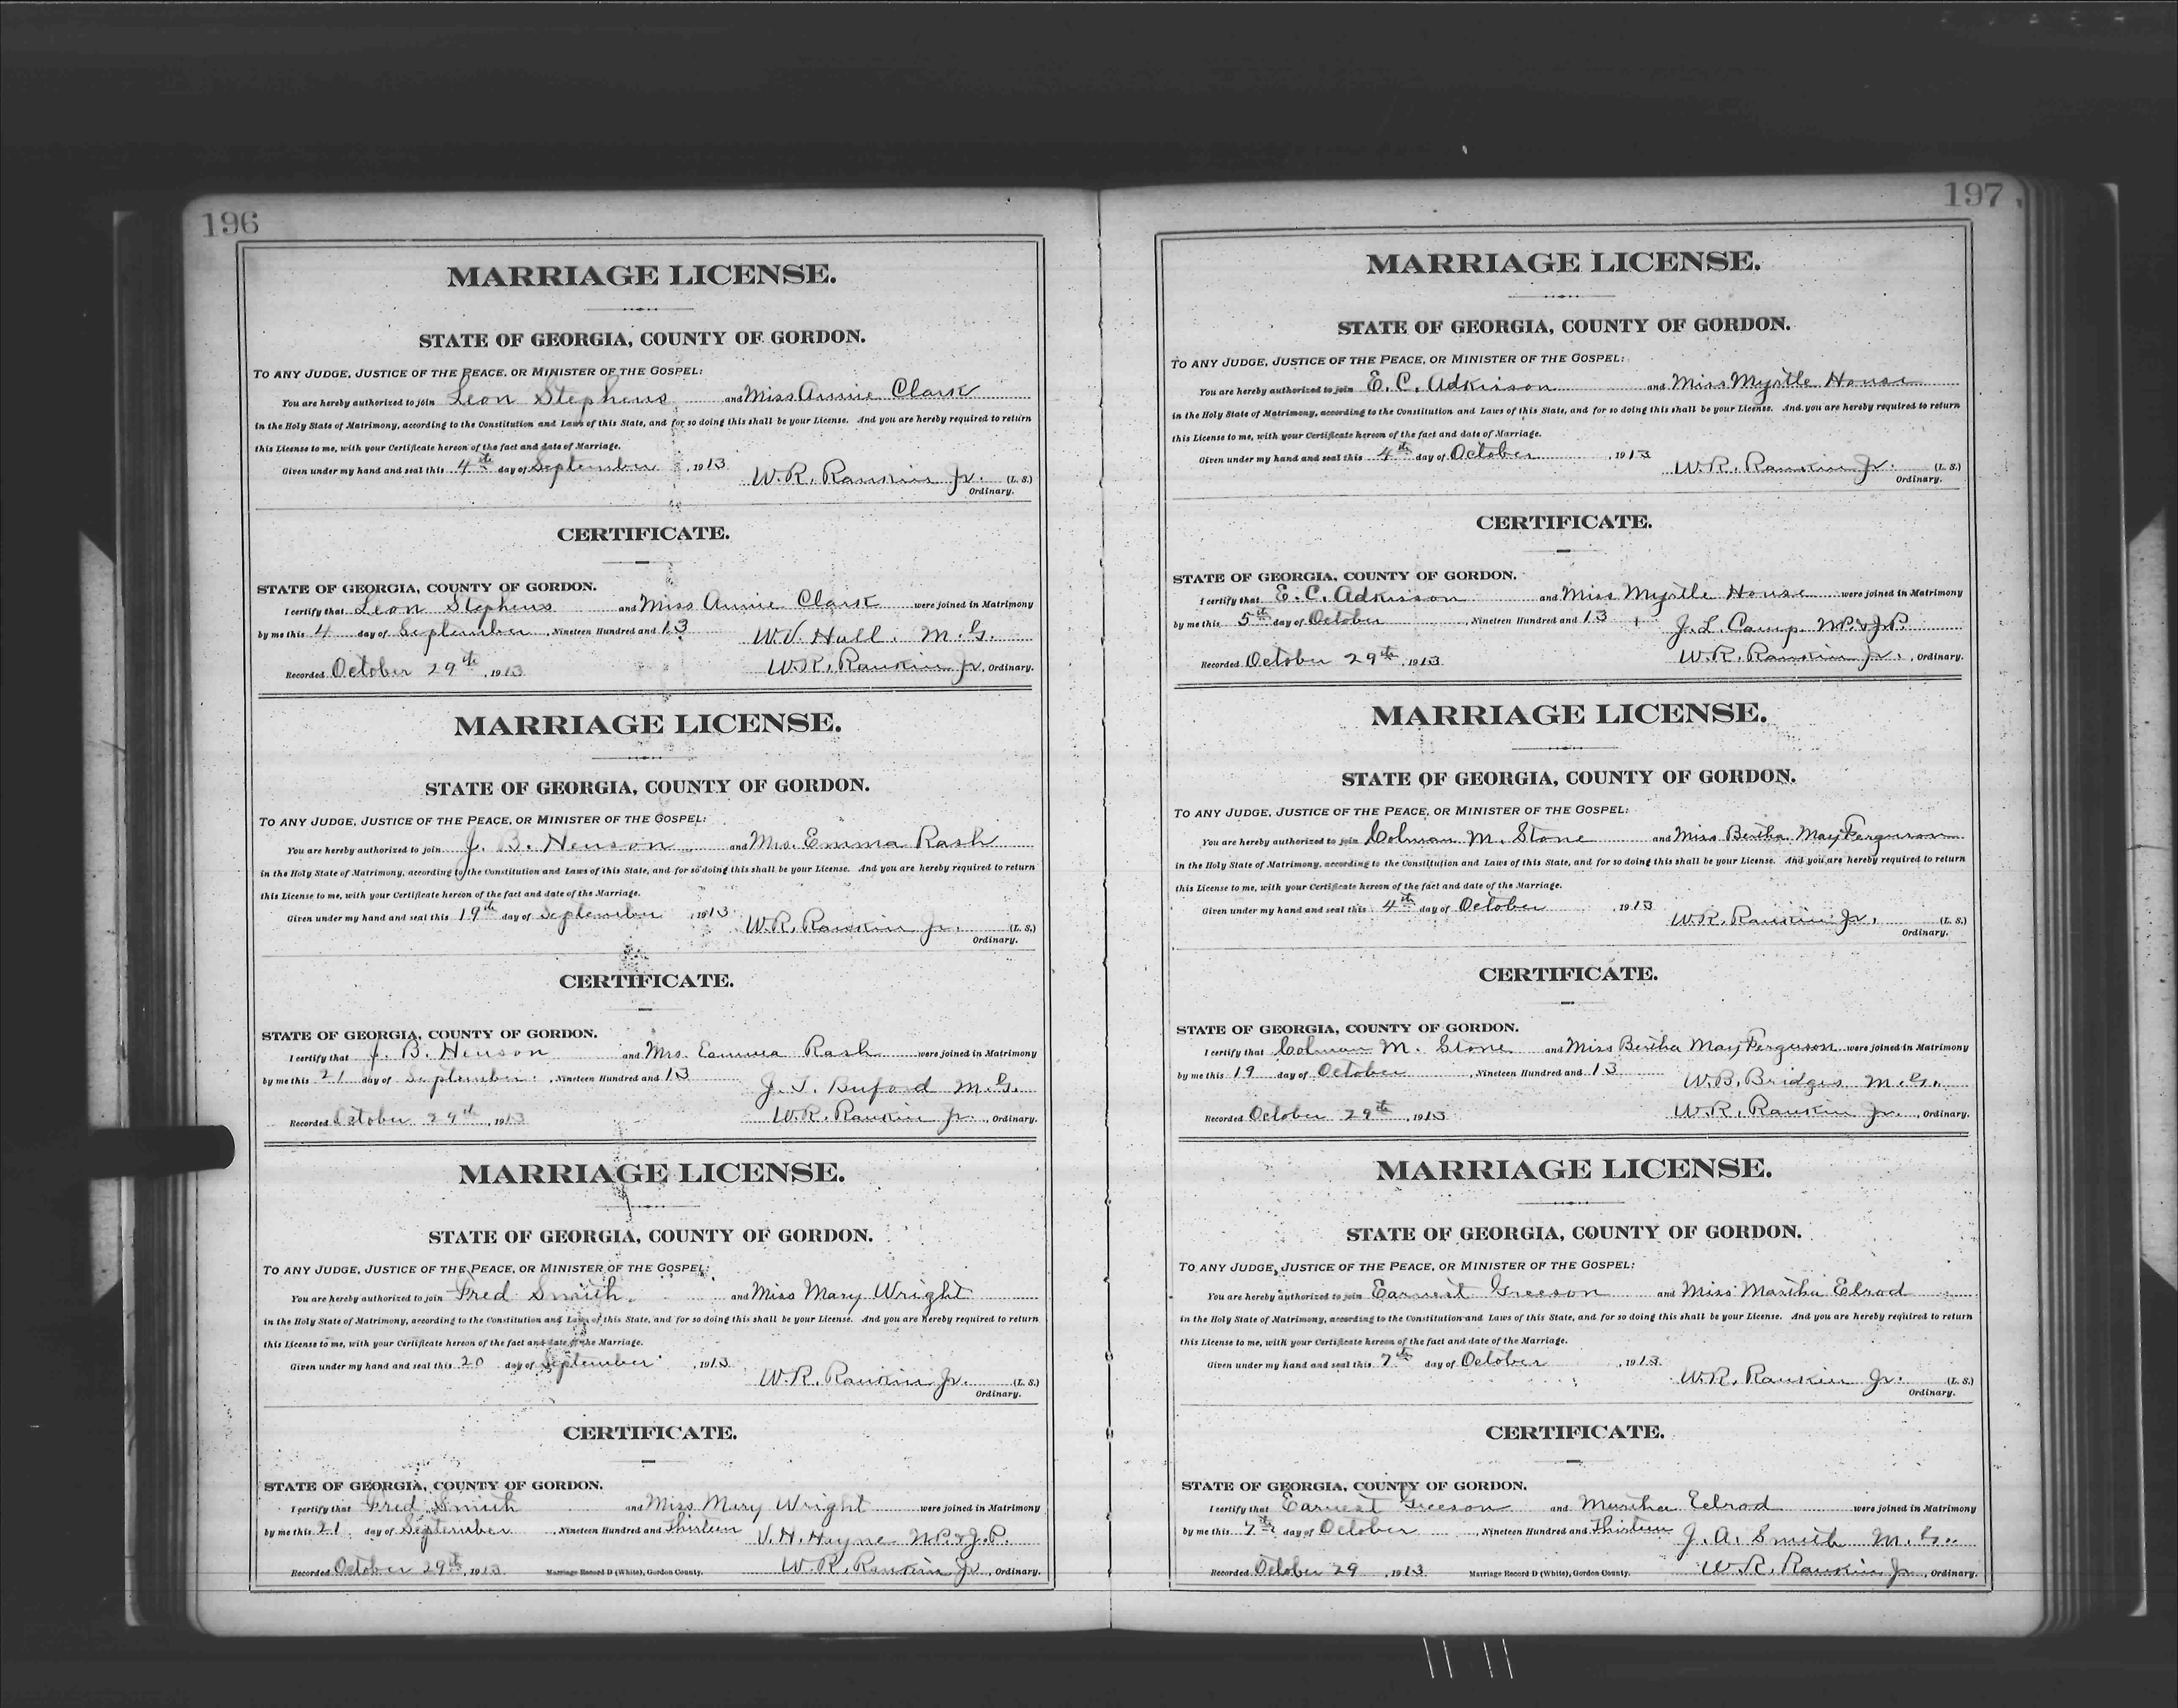 196
MARRIAGE LICENSE.
STATE OF GEORGIA, COUNTY OF GORDON.
TO ANY JUDGE, JUSTICE OF THE PEACE, OR MINISTER OF THE GOSPEL:
You are hereby authorized to join Leon Stephens and Miss Annie Clark
in the Holy State of Matrimony, according to the Constitution and Laws of this State, and for so doing this shall be your License. And you are hereby required to return
this License to me, with your Certificate hereon of the fact and date of Marriage.
Given under my hand and seal this 4th day of September, 1913
W. R. Rankin Jr. (L. S.)
Ordinary.
CERTIFICATE.
STATE OF GEORGIA, COUNTY OF GORDON.
I certify that Leon Stephens and Miss Annie Clark were joined in Matrimony
by me this 4 day of September, Nineteen Hundred and 13 W. V. Hall. M. G.
Recorded October 29th, 1913 W. R. Rankin Jr, Ordinary.
MARRIAGE LICENSE.
STATE OF GEORGIA, COUNTY OF GORDON.
TO ANY JUDGE, JUSTICE OF THE PEACE, OR MINISTER OF THE GOSPEL:
You are hereby authorized to join J. B. Henson and Mrs. Emma Rash
in the Holy State of Matrimony, according to the Constitution and Laws of this State, and for so doing this shall be your License. And you are hereby required to return
this License to me, with your Certificate hereon of the fact and date of the Marriage.
Given under my hand and seal this 19th day of September, 1913
W. R. Rankin Jr. (L. S.)
Ordinary.
CERTIFICATE.
STATE OF GEORGIA, COUNTY OF GORDON.
I certify that J. B. Henson and Mrs. Emma Rash were joined in Matrimony
by me this 21 day of September, Nineteen Hundred and 13 J. T. Buford M. G.
Recorded October 29th, 1913 W. R. Rankin Jr., Ordinary.
MARRIAGE LICENSE.
STATE OF GEORGIA, COUNTY OF GORDON.
TO ANY JUDGE, JUSTICE OF THE PEACE, OR MINISTER OF THE GOSPEL:
You are hereby authorized to join Fred Smith. and Miss Mary Wright
in the Holy State of Matrimony, according to the Constitution and Laws of this State, and for so doing this shall be your License. And you are hereby required to return
this License to me, with your Certificate hereon of the fact and date of the Marriage.
Given under my hand and seal this 20 day of September, 1913
W. R. Rankin Jr. (L. S.)
Ordinary.
CERTIFICATE.
STATE OF GEORGIA, COUNTY OF GORDON.
I certify that Fred Smith and Miss Mary Wright were joined in Matrimony
by me this 21 day of September, Nineteen Hundred and Thirteen V. H. N.P. & J.P.
Recorded October 29th, 1913 Marriage Record D (White), Gordon County. W. R. Rankin Jr, Ordinary.
197
MARRIAGE LICENSE.
STATE OF GEORGIA, COUNTY OF GORDON.
TO ANY JUDGE, JUSTICE OF THE PEACE, OR MINISTER OF THE GOSPEL:
You are hereby authorized to join E. C. Adkisson and Miss Myrtle House
in the Holy State of Matrimony, according to the Constitution and Laws of this State, and for so doing this shall be your License. And you are hereby required to return
this License to me, with your Certificate hereon of the fact and date of Marriage.
Given under my hand and seal this 4th day of October, 1913
W. R. Rankin Jr. (L. S.)
Ordinary.
CERTIFICATE.
STATE OF GEORGIA, COUNTY OF GORDON.
I certify that E. C. Adkisson and Miss Myrtle House were joined in Matrimony
by me this 5th day of October, Nineteen Hundred and 13 J. L. Camp N.P. & J.P.
Recorded October 29th, 1913 W. R. Rankin Jr., Ordinary.
MARRIAGE LICENSE.
STATE OF GEORGIA, COUNTY OF GORDON.
TO ANY JUDGE, JUSTICE OF THE PEACE, OR MINISTER OF THE GOSPEL:
You are hereby authorized to join Colman M. Stone and Miss Bertha May Ferguson
in the Holy State of Matrimony, according to the Constitution and Laws of this State, and for so doing this shall be your License. And you are hereby required to return
this License to me, with your Certificate hereon of the fact and date of the Marriage.
Given under my hand and seal this 4th day of October, 1913
W. R. Rankin Jr. (L. S.)
Ordinary.
CERTIFICATE.
STATE OF GEORGIA, COUNTY OF GORDON.
I certify that Colman M. Stone and Miss Bertha May Ferguson were joined in Matrimony
by me this 19 day of October, Nineteen Hundred and 13 W. B. Bridges M. G.
Recorded October 29th, 1913 W. R. Rankin Jr., Ordinary.
MARRIAGE LICENSE.
STATE OF GEORGIA, COUNTY OF GORDON.
TO ANY JUDGE, JUSTICE OF THE PEACE, OR MINISTER OF THE GOSPEL:
You are hereby authorized to join Earnest Greeson and Miss Martha Elrod
in the Holy State of Matrimony, according to the Constitution and Laws of this State, and for so doing this shall be your License. And you are hereby required to return
this License to me, with your Certificate hereon of the fact and date of the Marriage.
Given under my hand and seal this 7th day of October, 1913
W. R. Rankin Jr. (L. S.)
Ordinary.
CERTIFICATE.
STATE OF GEORGIA, COUNTY OF GORDON.
I certify that Earnest Greeson and Martha Elrod were joined in Matrimony
by me this 7th day of October, Nineteen Hundred and Thirteen J. A. Smith M. G.
Recorded October 29, 1913 Marriage Record D (White), Gordon County. W. R. Rankin Jr, Ordinary.